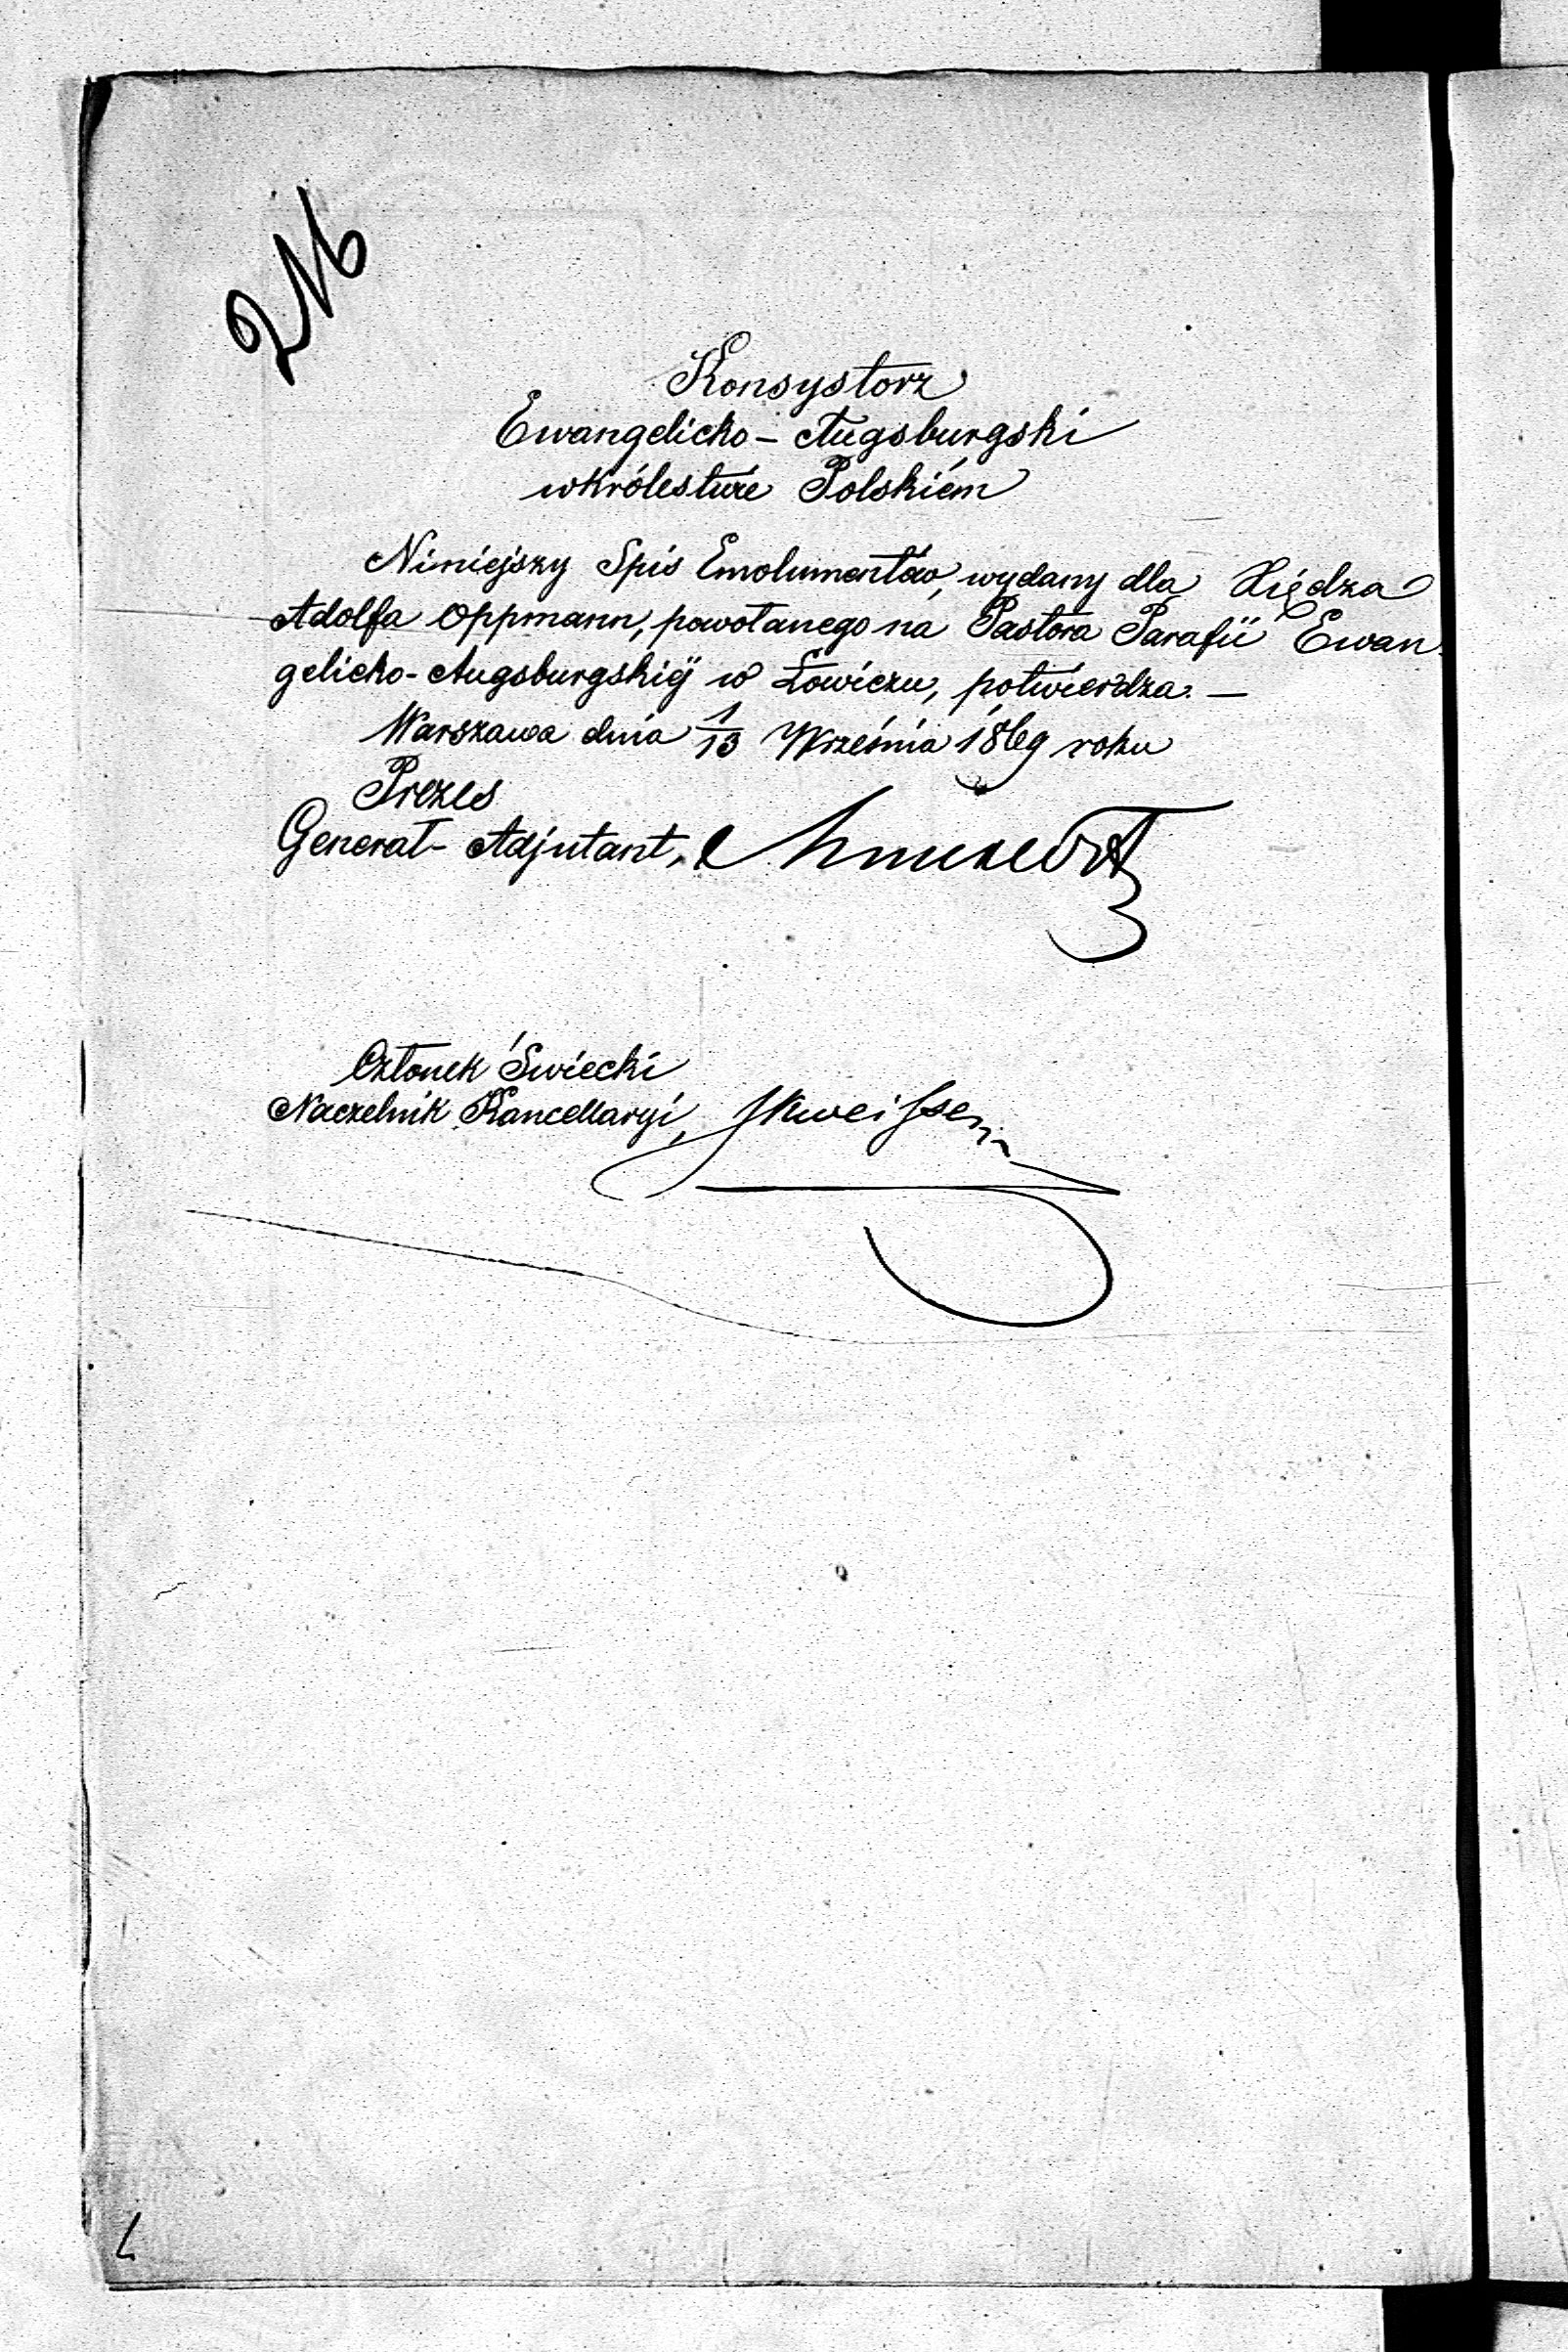 216
Konsystorz
Ewangelicko - Augsburgski
w Królestwie Polskiém
Niniejszy Spis Emolumentów, wydany dla Xiędza
Adolfa Oppmann, powołanego na Pastora Parafii Ewan
gelicko-Augsburgskiéj w Łowiczu, potwierdza. —
Warszawa dnia 1/13 Września 1869 roku
Prezes
Generał- Adjutant,
Członek Świecki
Naczelnik Kancellaryi,